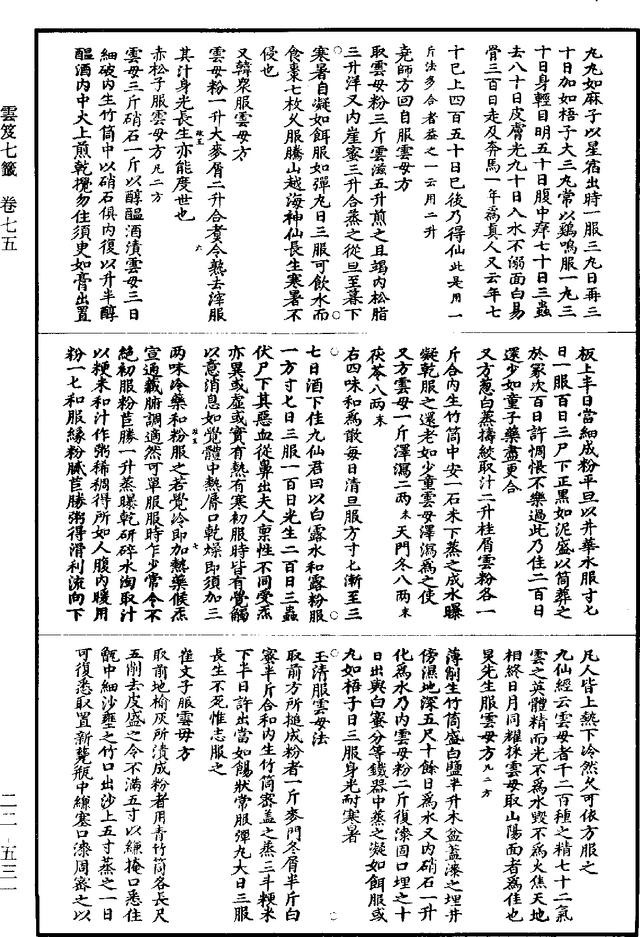 九丸如麻子以星宿出時一服三九日再三
十日加如梧子大三九常以鷄鳴服一九三
十日身輕目明五十日腹中痒七十日三蟲
去八十日皮膚光九十日入水不溺面白易
骨三百日走及奔馬一年爲真人又云年七
十已上四百五十日已後乃得仙此是用一
斤法多合者益之一云用二升
堯師方回自服雲母方
取雲母粉三斤雲滋五升煎之且竭內松脂
三升洋又內崖蜜三升合蒸之從旦至暮下
寒暑自凝如餌服如彈丸日三服可飲水而
食棗七枚久服騰山越海神仙長生寒暑不
侵也
又韓衆服雲母方
雲母粉一升大麥屑二升合煑令熟去滓服
其汁身光長生亦能度世也
赤松子服雲母方凡二方
雲母三斤硝石一斤以醇醞酒漬雲母三日
細破內生竹筒中以硝石俱內復以升半醇
醞酒內中火上煎乾攪勿住須臾如膏出置
板上半日當細成粉平旦以井華水服寸七
日一服百日三尸下正黑如泥盛以筒葬之
於冢次百日許惆悵不樂過此乃佳二百日
還少如童子藥盡更合
又方葱白蒸擣絞取汁二升桂屑雲粉各一
斤合內生竹筒中安一石米下蒸之成水曝
凝乾服之還老如少童雲母澤瀉爲之使
又方雲母一斤澤瀉二两末天門冬八两末
茯苓八两末
右四味和爲散每日清旦服方寸七漸至三
七日酒下佳九仙君曰以白露水和露粉服
一方寸七日三服一百日光生二百日三蟲
伏尸下其惡血從鼻出夫人稟性不同受炁
亦異或虛或實有熱有寒初服時皆有覺觸
以意消息如覺體中熱脣口乾燥即須加三
两味冷藥和粉服之若覺冷即加熱藥候炁
宣通藏腑調適然可單服服時乍少常令不
絕初服粉苣勝一升蒸曝乾研碎水淘取汁
以粳米和汁作粥稀稠得所如人腹內暖用
粉一七和服緣粉膩苣勝粥得滑利流向下
凡人皆上熱下冷然久可依方服之
九仙經云雲母者千二百種之精七十二氣
雲之英體精而光不爲水毀不爲火焦天地
相終日月同耀採雲母取山陽面者爲佳也
炅先生服雲母方凡二方
薄削生竹筒盛白鹽半升木盆蓋漆之埋井
傍濕地深五尺十餘日爲水又內硝石一升
化爲水乃內雲母粉二斤復漆固口埋之十
日出與白蜜分等鐵器中蒸之凝如餌服或
丸如梧子日三服身光耐寒暑
玉清服雲母法
取前方所搥成粉者一斤麥門冬屑半斤白
蜜半斤合和內生竹筒密蓋之蒸三斗粳米
下半日許出當如餳狀常服彈丸大日三服
長生不死惟志服之
崔文子服雲母方
取前地榆灰所漬成粉者用青竹筒各長尺
五削去皮盛之令不滿五寸以緜掩口悉住
甑中細沙壅之竹口出沙上五寸蒸之一日
可復悉取置新甕瓶中緜塞口漆周密之以
雲笈七籤 卷七五
二二-五三一